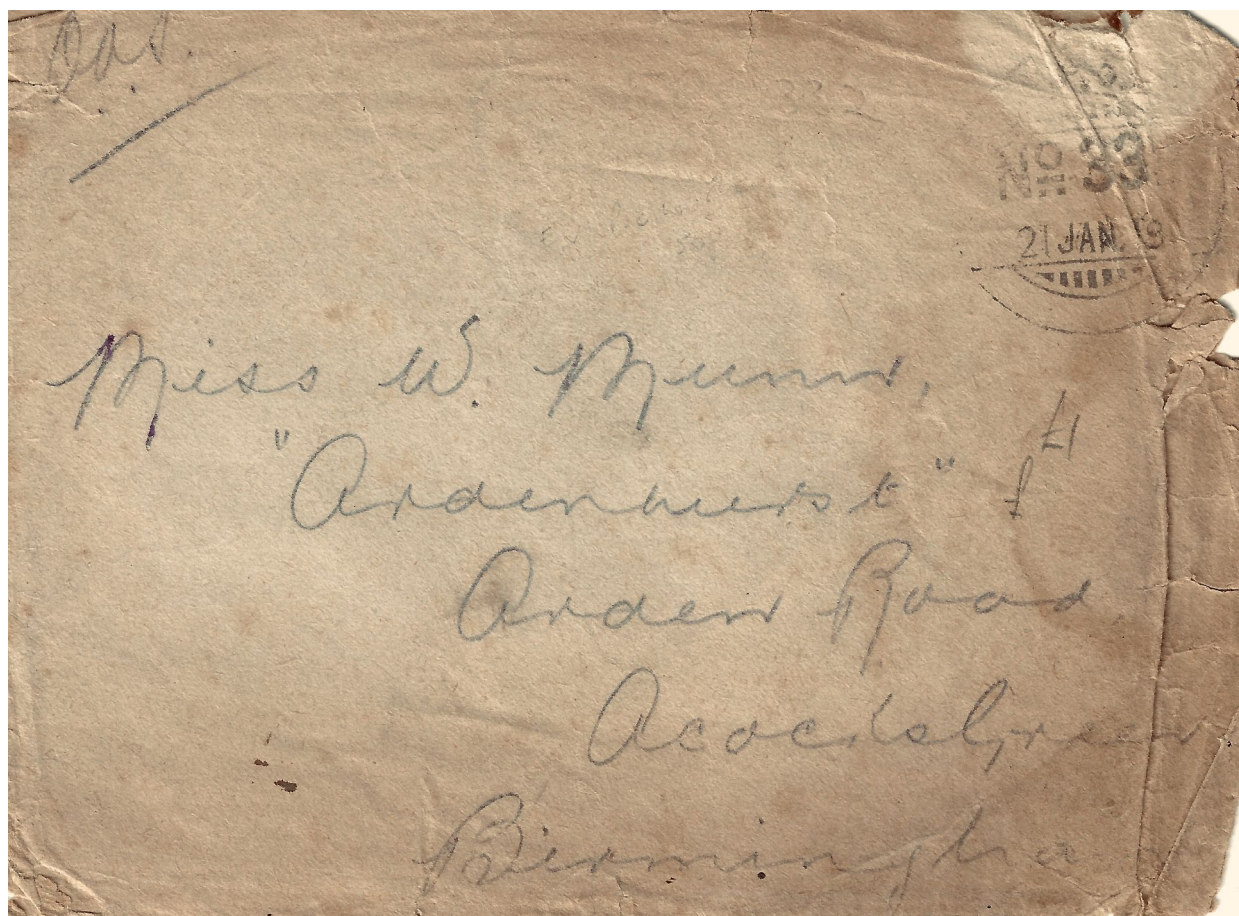 OAS.
No
21 JAN. 19
Miss W. Munn,
"Ardenhurst"
Arden Road
Acocks Green
Birmingha